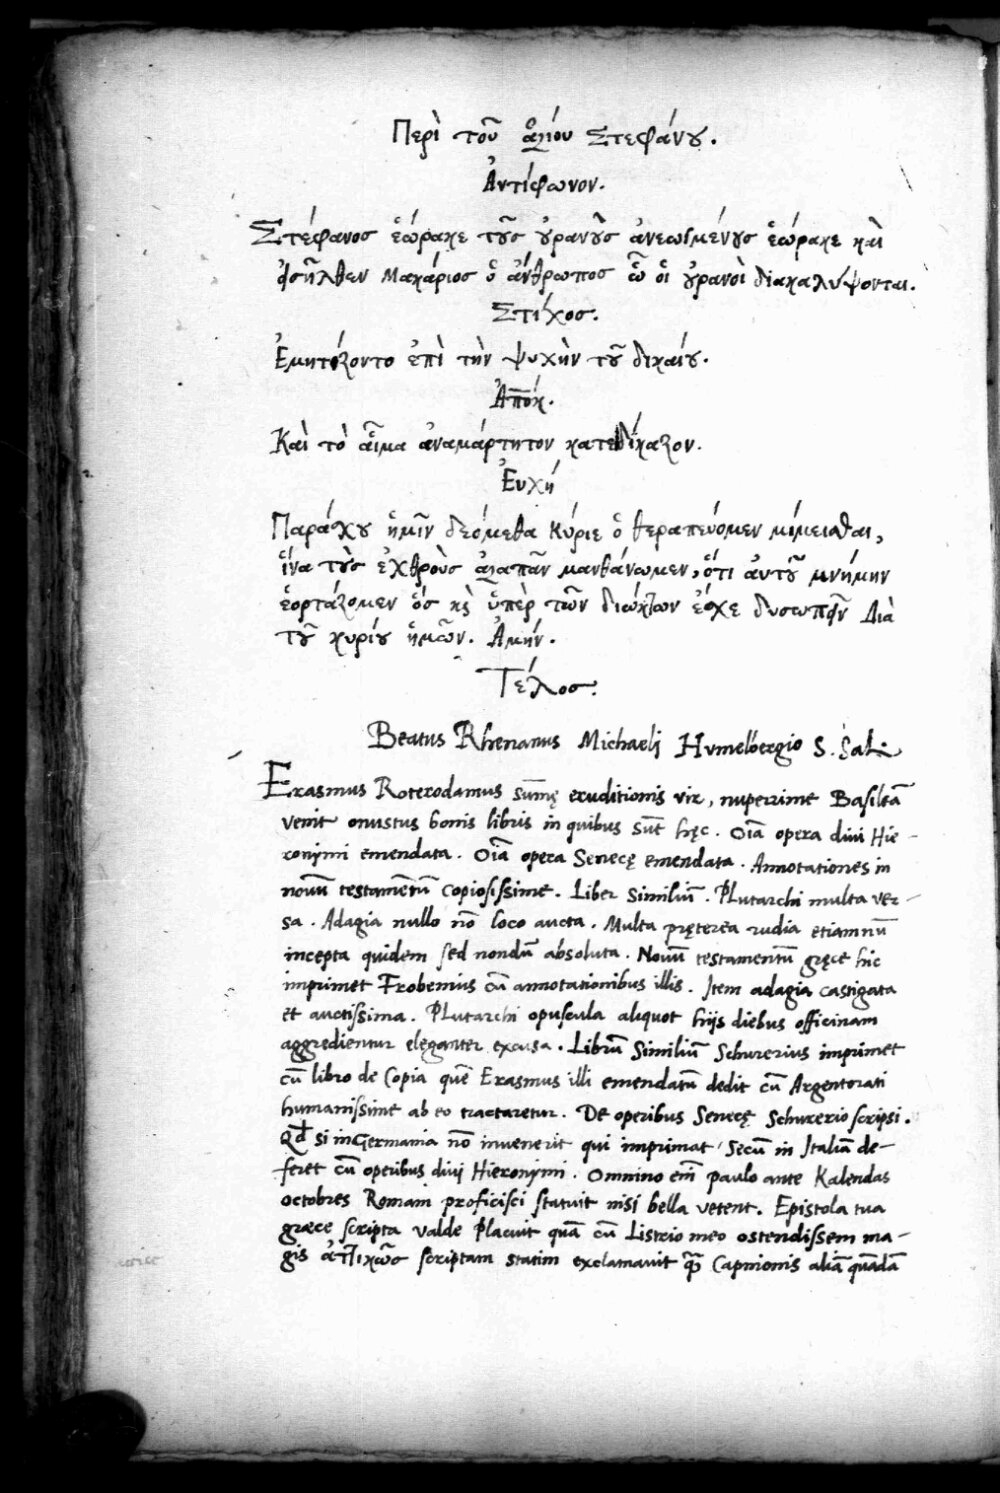 Περὶ τοῦ ἁγίου Στεφάνου.
Ἀντίφωνον.
Στέφανος ἑώρακε τοῦς οὐρανοῦς ἀνεωγμένους ἑώρακε καὶ
εἰσῆλθεν μακάριος ὁ ἄνθρωπος ᾧ οἱ οὐρανοὶ διακαλύψονται.
Στίχος.
ἐπὶ τὴν ψυχὴν τοῦ δικαίου.
Ἀπόκ.
Καὶ τὸ αἷμα ἀναμάρτητον κατεδίκαζον.
Ἐυχή
Παράσχου ἡμῖν δεόμεθα κύριε ὃ θεραπεύομεν μίμεισθαι,
ἵνα τοὺς ἐχθροὺς ἀγαπᾶν μανθάνωμεν, ὅτι ἀυτοῦ μνήμην
ἑορτάζομεν ὅς κὶ ὑπὲρ τῶν διώκτων ἔσχε δυσωπεῖν Διὰ
τοῦ κυρίου ἡμῶν. Ἀμήν.
Τέλος.
Beatus Rhenanus Michaeli Humelbergio S. Sal.
Erasmus Roterodamus sūmę eruditionis vir, nuperrime Basileā
venit onustus bonis libris in quibus sūt hęc. Oīa opera divi Hie-
ronymi emendata. Oīa opera Senecę emendata. Annotationes in
novū testamentū copiosissime. Liber Similiū. Plutarchi multa ver-
sa. Adagia nullo nō loco aucta. Multa pręterea rudia etiamnū
incepta quidem sed nondū absoluta. Novū testamentū gręce hic
imprimet Frobenius cū annotationibus illis. Item adagia castigata
et auctissima. Plutarchi opuscula aliquot hijs diebus officinam
aggredientur eleganter excusa. Librū Similiū Schurerius imprimet
cū libro de Copia quē Erasmus illi emendatū dedit cū Argentorati
humanissime ab eo tractaretur. De operibus Senecę Schurerio scripsi.
Qd si in Germania nō invenerit qui imprimat, Secū in Italiā de-
feret cū operibus divi Hieronymi. Omnino em̄ paulo ante Kalendas
octobres Romam proficisci statuit nisi bella vetent. Epistola tua
græce scripta valde placuit quā cū Listrio meo ostendissem ma-
gis ἀττικῶς scriptam statim exclamavit q̄ Capnionis aliā quādā